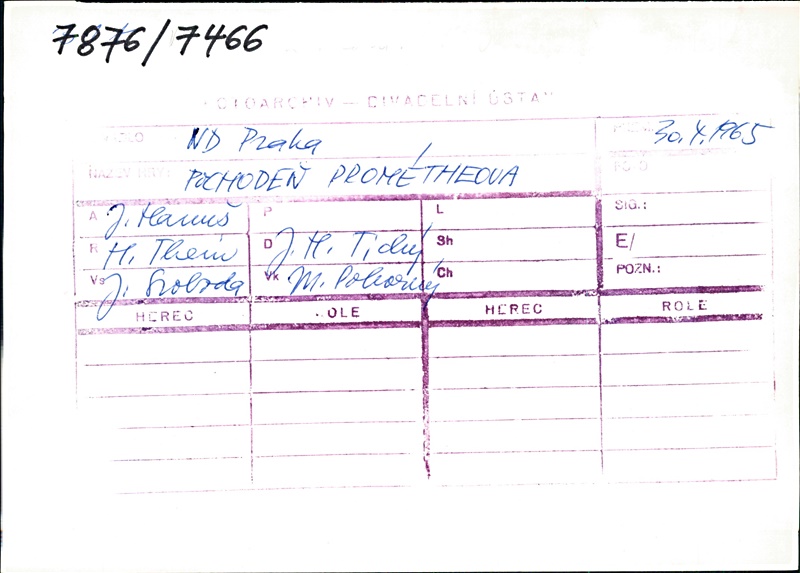 7876/7466
FOTOARCHIV – DIVADELNÍ ÚSTAV
ND Praha
30.4.1965
NÁZEV HRY:
POCHODEŇ PROMÉTHEOVA
A J. Hanuš P L SIG.:
R H. Thein D J. H. Tichý Sh E/
Vs J. Svoboda Vk M. Pokorný Ch POZN.:
HEREC ROLE HEREC ROLE